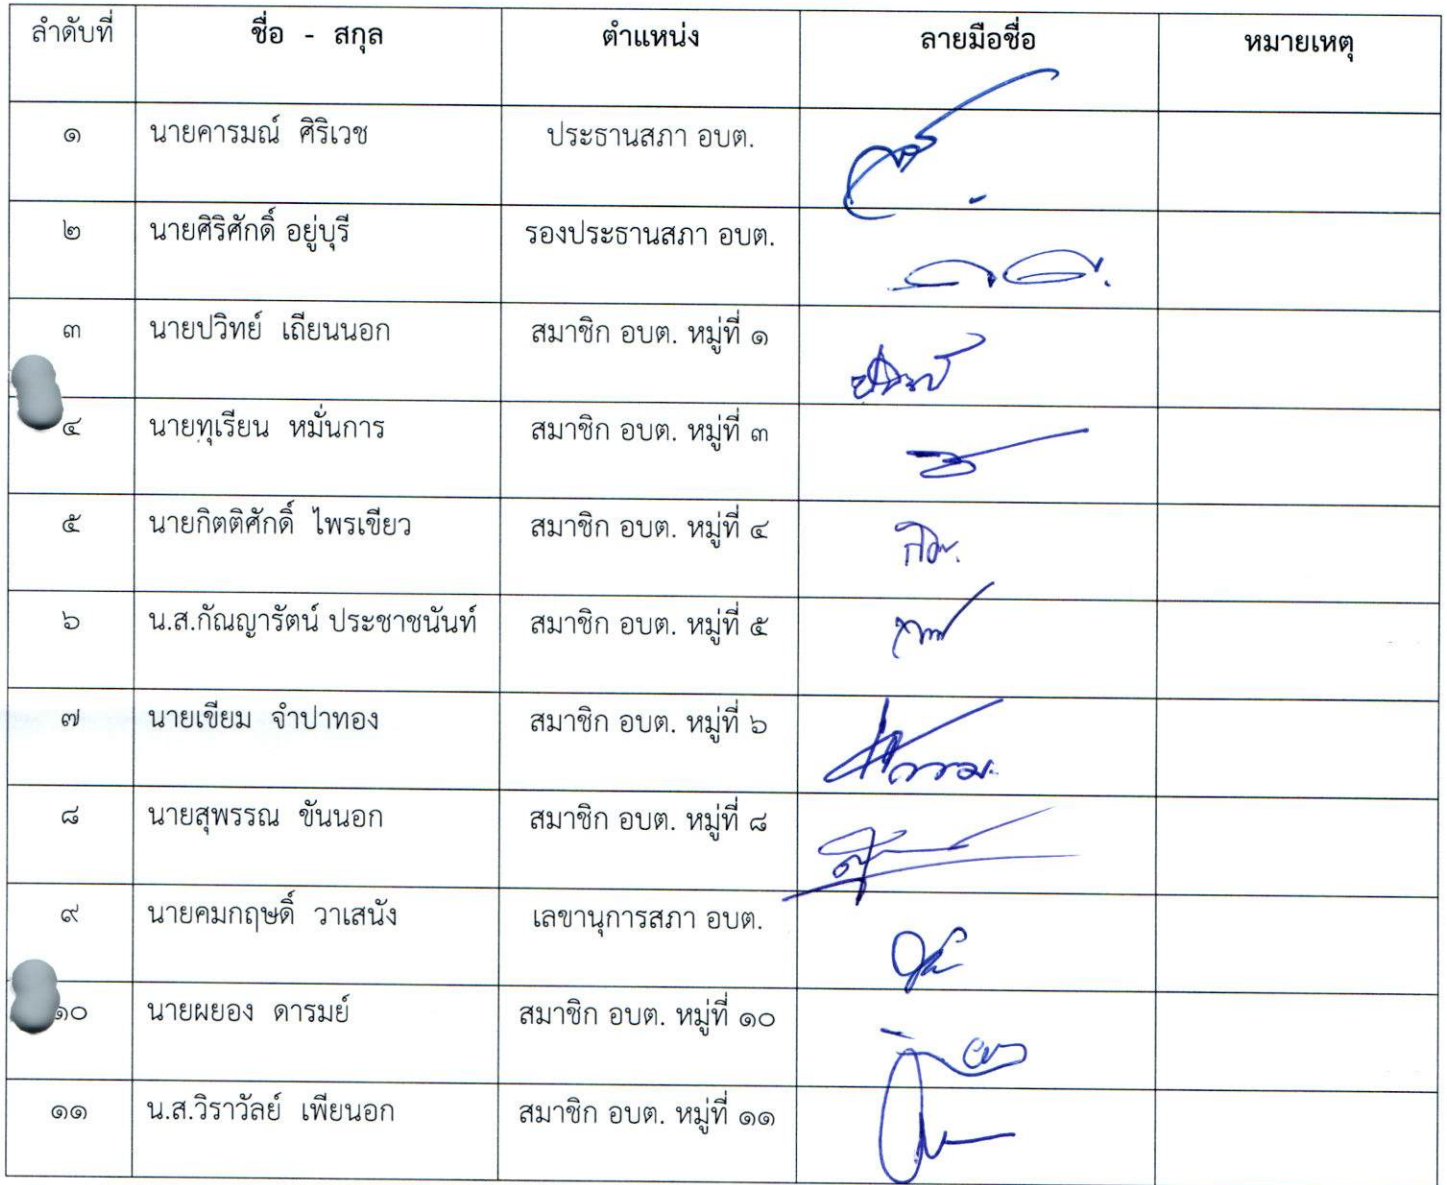 ลำดับที่ ชื่อ - สกุล ตำแหน่ง ลายมือชื่อ หมายเหตุ
๑ นายคารมณ์ ศิริเวช ประธานสภา อบต.
๒ นายศิริศักดิ์ อยู่บุรี รองประธานสภา อบต.
๓ นายปวิทย์ เถียนนอก สมาชิก อบต. หมู่ที่ ๑
๔ นายทุเรียน หมั่นการ สมาชิก อบต. หมู่ที่ ๓
๕ นายกิตติศักดิ์ ไพรเขียว สมาชิก อบต. หมู่ที่ ๔
๖ น.ส.กัณญารัตน์ ประชาชนันท์ สมาชิก อบต. หมู่ที่ ๕
๗ นายเขียม จำปาทอง สมาชิก อบต. หมู่ที่ ๖
๘ นายสุพรรณ ขันนอก สมาชิก อบต. หมู่ที่ ๘
๙ นายคมกฤษดิ์ วาเสนัง เลขานุการสภา อบต.
๑๐ นายผยอง ดารมย์ สมาชิก อบต. หมู่ที่ ๑๐
๑๑ น.ส.วิราวัลย์ เพียนอก สมาชิก อบต. หมู่ที่ ๑๑